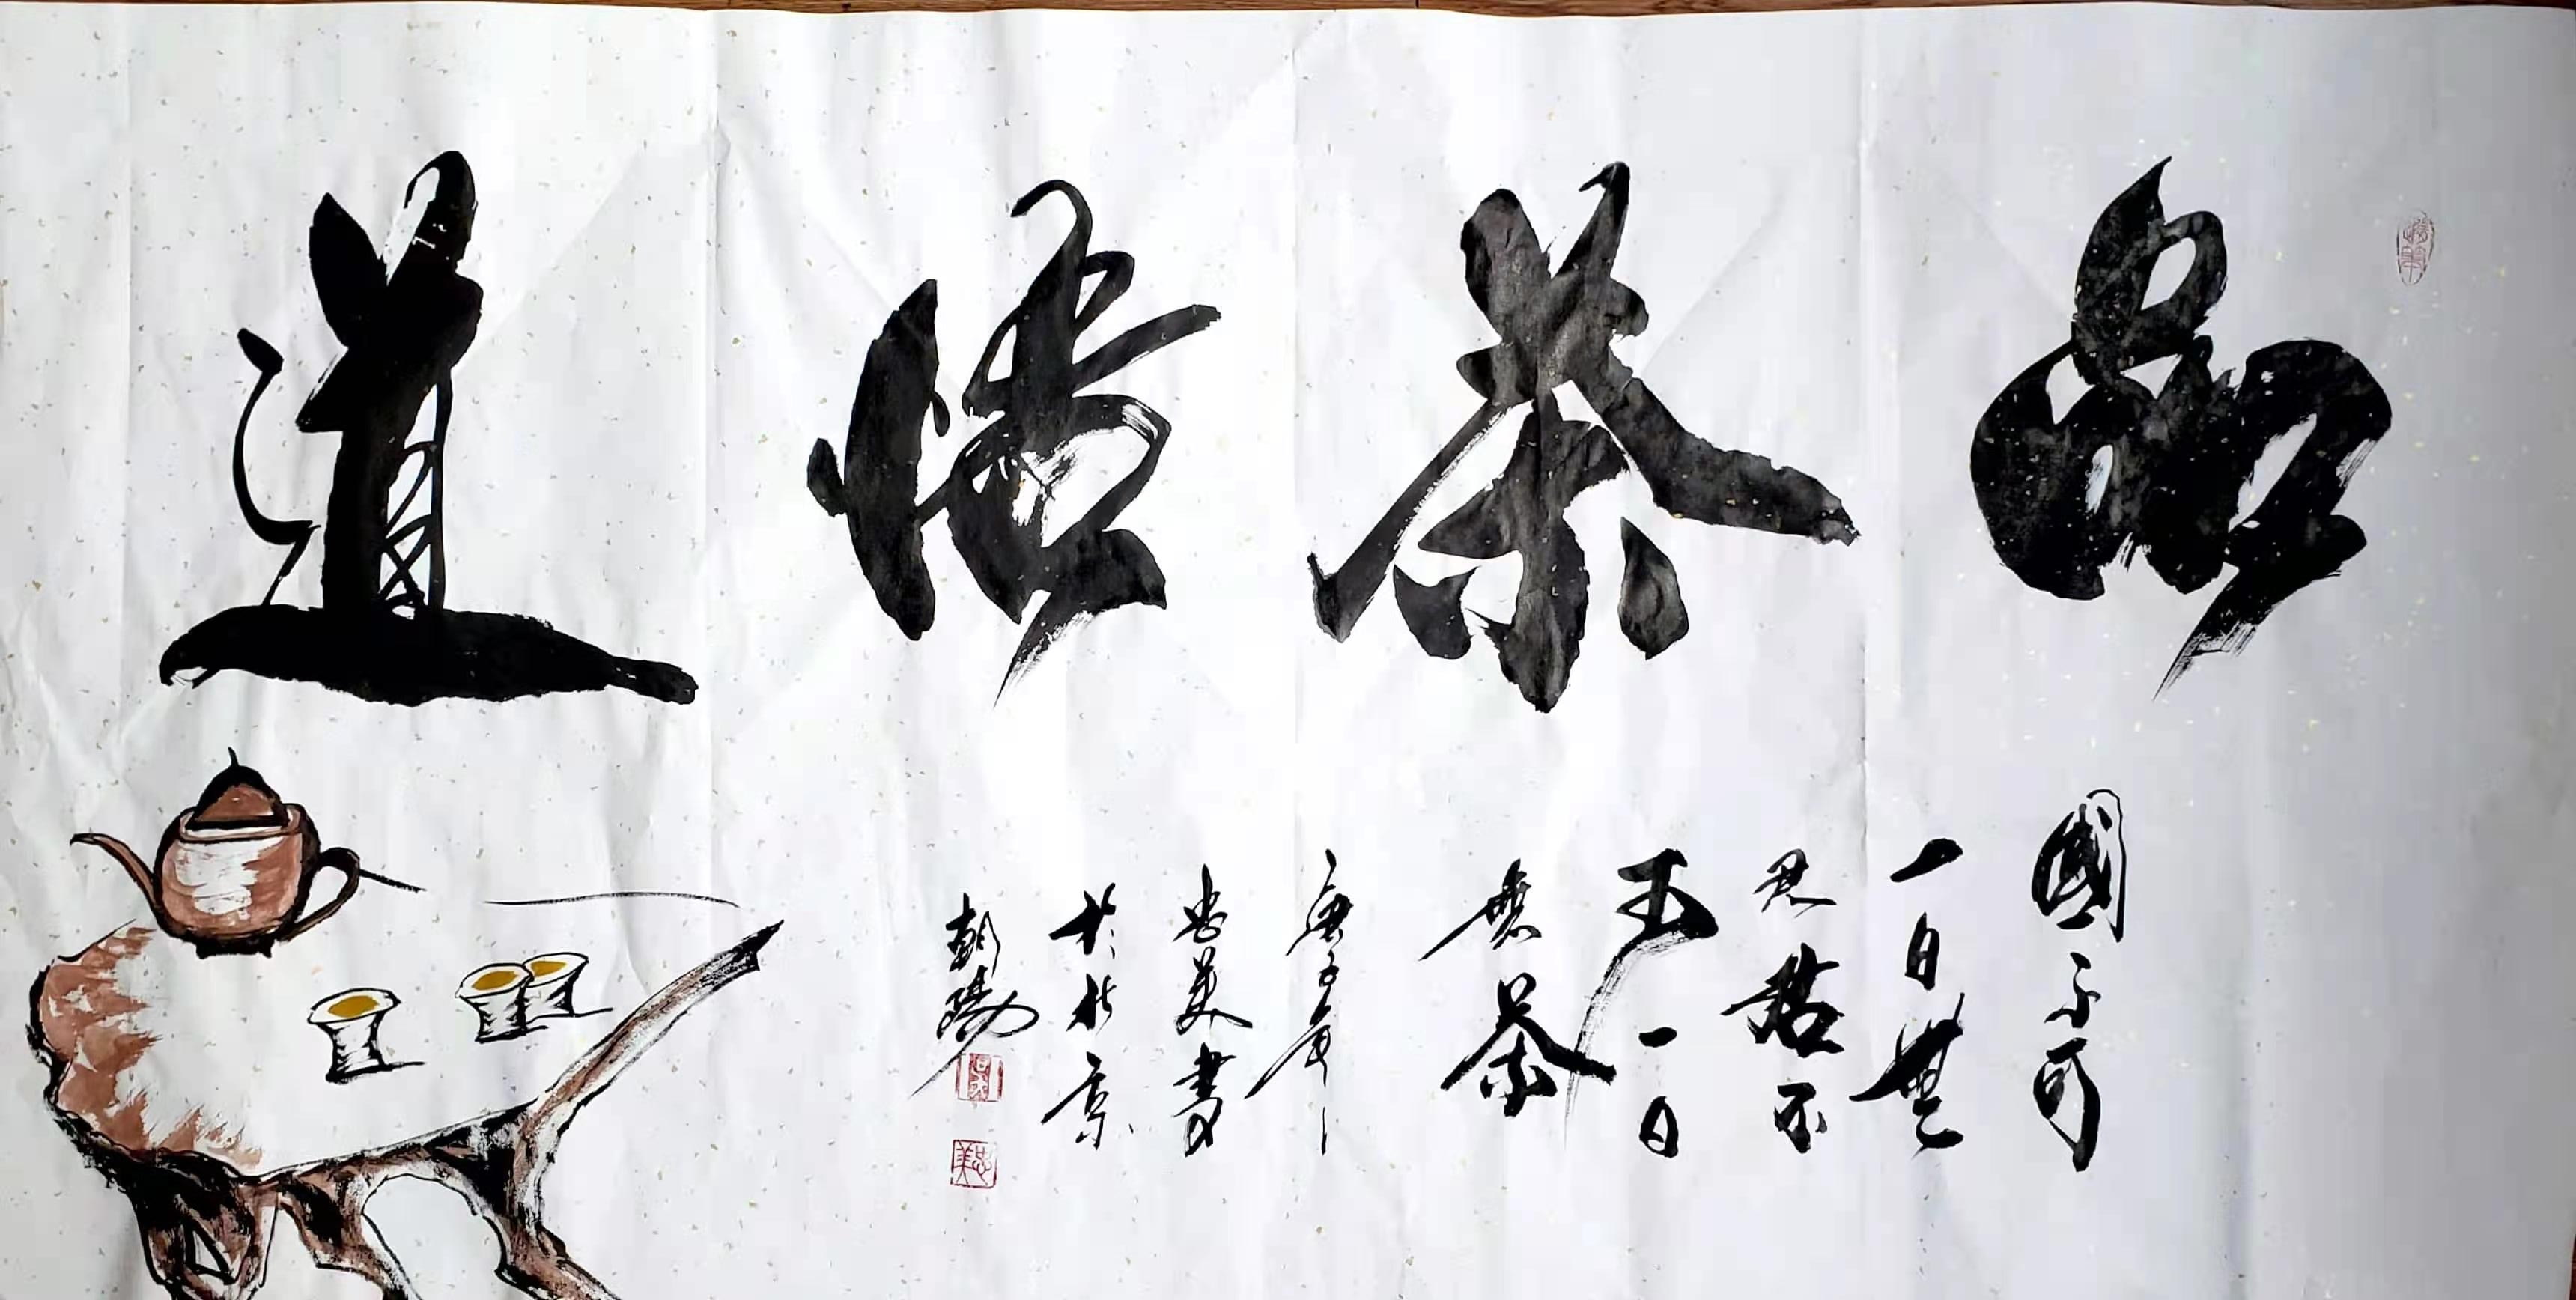 品茶悟道
國不可
一日無
君 君不
可一日
無茶
庚子年
忠美書
於北京
朝陽
忠美